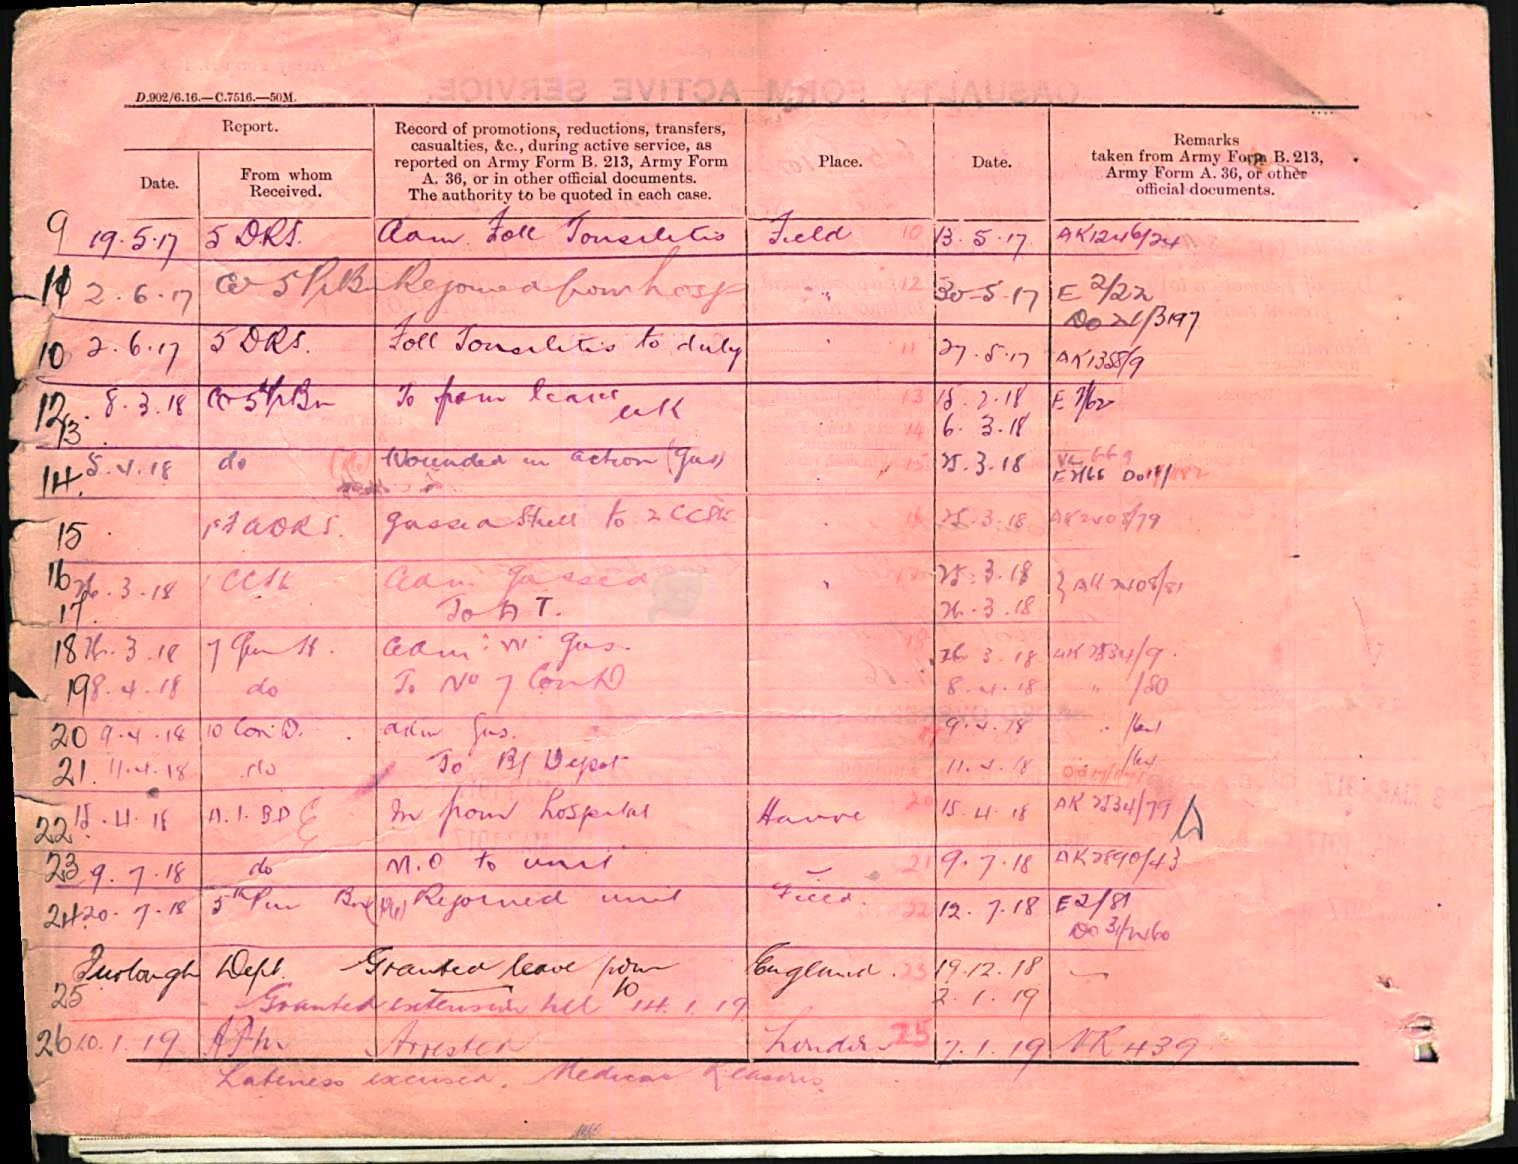 D.902/6.16.—C.7516.—50M.
Report.
Date.
From whom Received.
Record of promotions, reductions, transfers, casualties, &c., during active service, as reported on Army Form B. 213, Army Form A. 36, or in other official documents. The authority to be quoted in each case.
Place.
Date.
Remarks taken from Army Form B. 213, Army Form A. 36, or other official documents.
9 19.5.17 5 DRS. Adm Foll Tonsilitis Field 10 13.5.17 AK1246/24
11 2.6.17 5 Rejoined from hosp " 12 30-5-17 E 2/22
Do 21/3197
10 2.6.17 5 DRS. Foll Tonsilitis to duty 11 27.5.17 AK1358/9
12 8.3.18 To from leave UK 13 15.2.18 E
13 14 6.3.18
14. 5.4.18 do Wounded in action (gas) 15 25.3.18
15 gassed Shell to 2 CCStn 16 25.3.18 AK2408/79
16 26.3.18 Adm gassed 25.3.18 AK 2408/81
17. To A T. 26.3.18
18 26.3.18 7 Gen H. adm: W gas. 18 26.3.18 AK2534/9.
19 8.4.18 do To No 7 Con D 8.4.18 " /80
20 9.4.18 10 Con D. adm gas. 9.4.18 "
21. 11.4.18 do To Bs Depot 11.4.18
22. 15.4.18 A.I.B.D In from hospital Havre 20 15.4.18 AK 2534/79
23 9.7.18 do M.O to unit 21 9.7.18 AK2890/43
24. 20.7.18 5th Pnr Bn Rejoined unit Field. 22 12.7.18 E2/81
Furlough Dept. Granted leave from England. 23 19.12.18
25 to 2.1.19
Granted extension till 14.1.19
26 10.1.19 APM Arrested London 25 7.1.19 NR 439
Lateness excused. Medical Reasons.